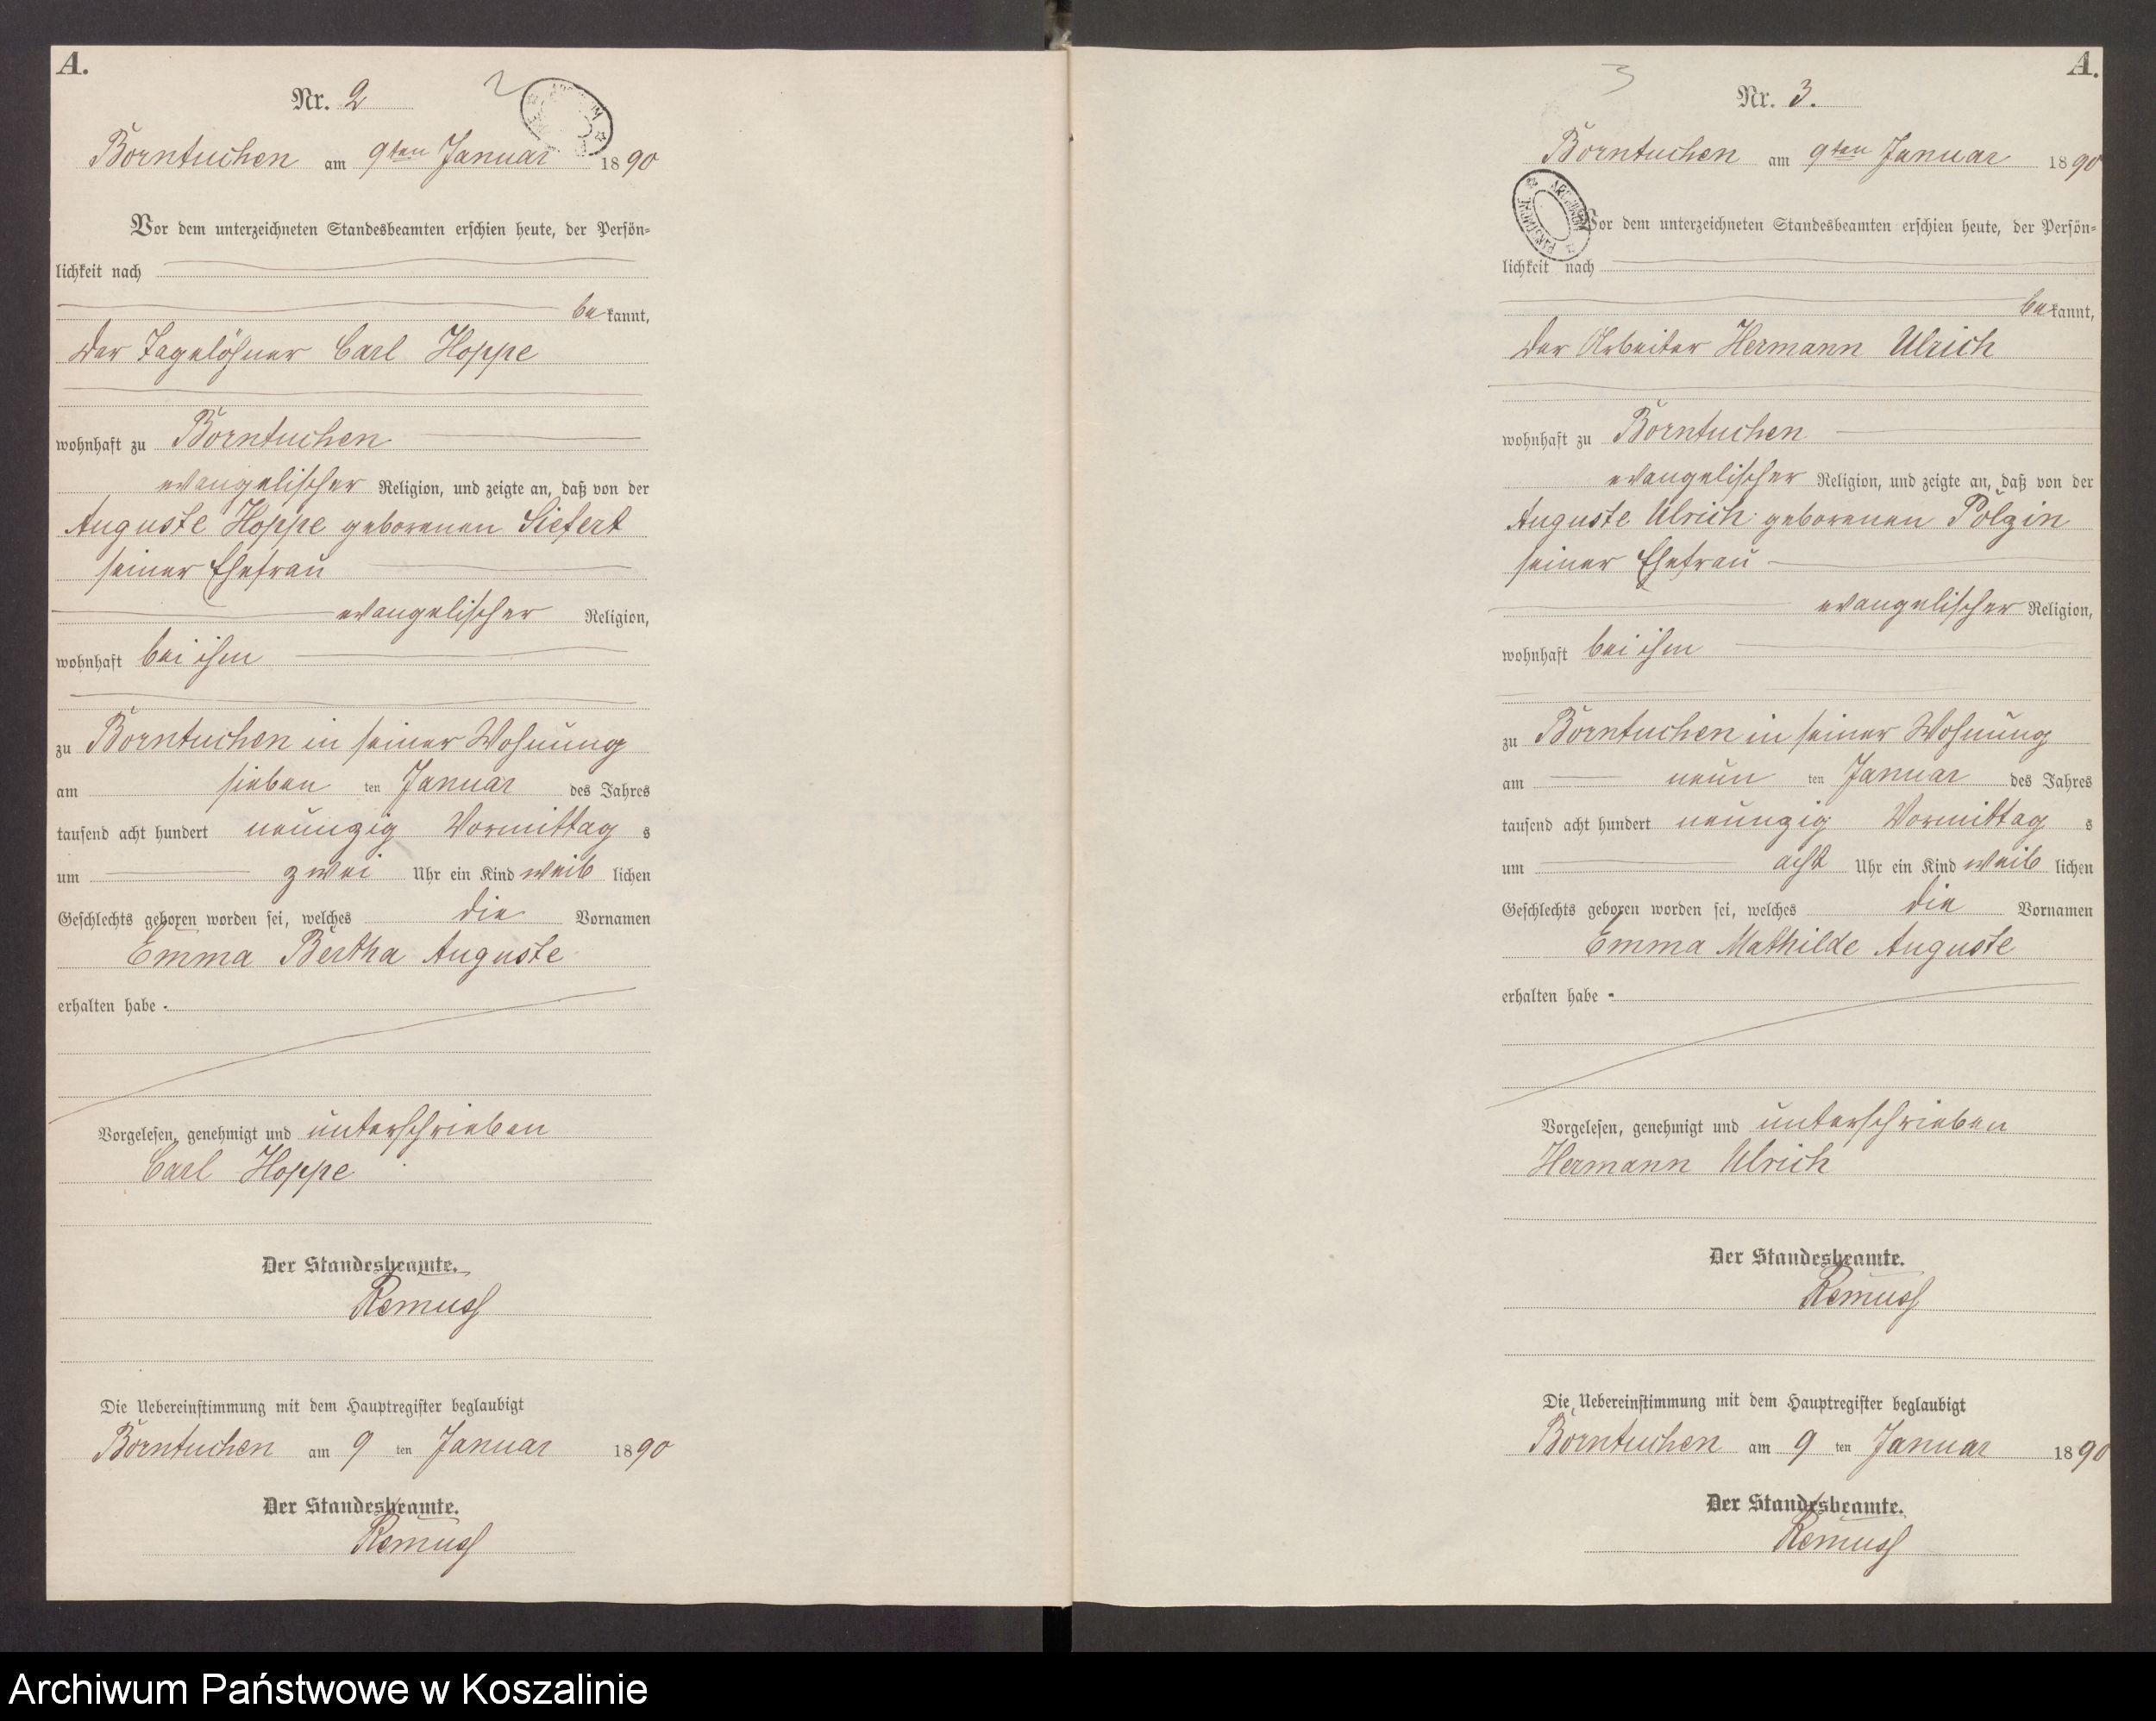 A.
Nr. 2
2
Borntuchen am 9ten Januar 1890
Vor dem unterzeichneten Standesbeamten erschien heute, der Persön-
lichkeit nach
be kannt,
der Tagelöhner Carl Hoppe
wohnhaft zu Borntuchen
evangelischer Religion, und zeigte an, daß von der
Auguste Hoppe geborenen Siefert
seiner Ehefrau
evangelischer Religion,
wohnhaft bei ihm
zu Borntuchen in seiner Wohnung
am sieben ten Januar des Jahres
tausend acht hundert neunzig Vormittag s
um zwei Uhr ein Kind weib lichen
Geschlechts geboren worden sei, welches die Vornamen
Emma Bertha Auguste
erhalten habe.
Vorgelesen, genehmigt und unterschrieben
Carl Hoppe
Der Standesbeamte.
Remuss
Die Uebereinstimmung mit dem Hauptregister beglaubigt
Borntuchen am 9 ten Januar 1890
Der Standesbeamte.
Remuss
A.
3
Nr. 3.
Borntuchen am 9ten Januar 1890
Vor dem unterzeichneten Standesbeamten erschien heute, der Persön-
lichkeit nach
be kannt,
der Arbeiter Hermann Ulrich
wohnhaft zu Borntuchen
evangelischer Religion, und zeigte an, daß von der
Auguste Ulrich geborenen Polzin
seiner Ehefrau
evangelischer Religion,
wohnhaft bei ihm
zu Borntuchen in seiner Wohnung
am neun ten Januar des Jahres
tausend acht hundert neunzig Vormittag s
um acht Uhr ein Kind weib lichen
Geschlechts geboren worden sei, welches die Vornamen
Emma Mathilde Auguste
erhalten habe.
Vorgelesen, genehmigt und unterschrieben
Hermann Ulrich
Der Standesbeamte.
Remuss
Die Uebereinstimmung mit dem Hauptregister beglaubigt
Borntuchen am 9 ten Januar 1890
Der Standesbeamte.
Remuss
Archiwum Państwowe w Koszalinie